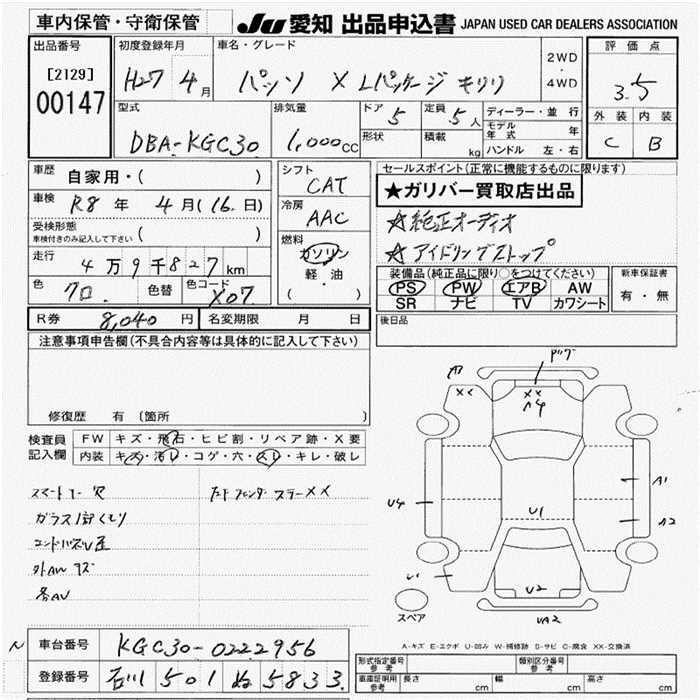 車内保管・守衛保管
JU 愛知 出品申込書 JAPAN USED CAR DEALERS ASSOCIATION
出品番号
[2129]
00147
初度登録年月
H27 年 4月
車名・グレード
パッソ X Lパッケージ キリリ
2WD
・
4WD
評価点
3.5
外装 内装
C B
型式
DBA-KGC30
排気量
1,000cc
ドア 5
定員 5人
形状
積載 kg
ディーラー・並行
モデル年式 年
ハンドル 左・右
車歴 自家用・( )
車検 R8年 4月(16日)
受検形態
車検付きのみ記入して下さい ( )
走行 4万9千827km
色 クロ 色替 色コード X07
シフト
CAT
冷房
AAC
燃料
ガソリン
軽・油
( )
セールスポイント(正常に機能するものに限ります)
★ガリバー買取店出品
☆純正オーディオ
☆アイドリングストップ
装備品(純正品に限り○をつけてください)
PS PW エアB AW
SR ナビ TV カワシート
新車保証書
有・無
R券 8,040円 名変期限 月 日
後日品
注意事項申告欄(不具合内容等は具体的に記入して下さい)
修復歴 有(箇所 )
検査員
記入欄
FW キズ・飛石・ヒビ割・リペア跡・X要
内装 キズ・汚レ・コゲ・穴・スレ・キレ・破レ
ガラス
外AW キズ
各AU
A3
××
××
U4
U1
A1
A2
U1
U2
UA2
スペア
A-キズ E-エクボ U-凹み W-補修跡 S-サビ C-腐食 XX-交換済
車台番号 KGC30-0222956
登録番号 石川 501 ぬ 5833
形式指定番号
参考
類別区分番号
参考
車庫証明用
参考
長さ cm 幅 cm 高さ cm